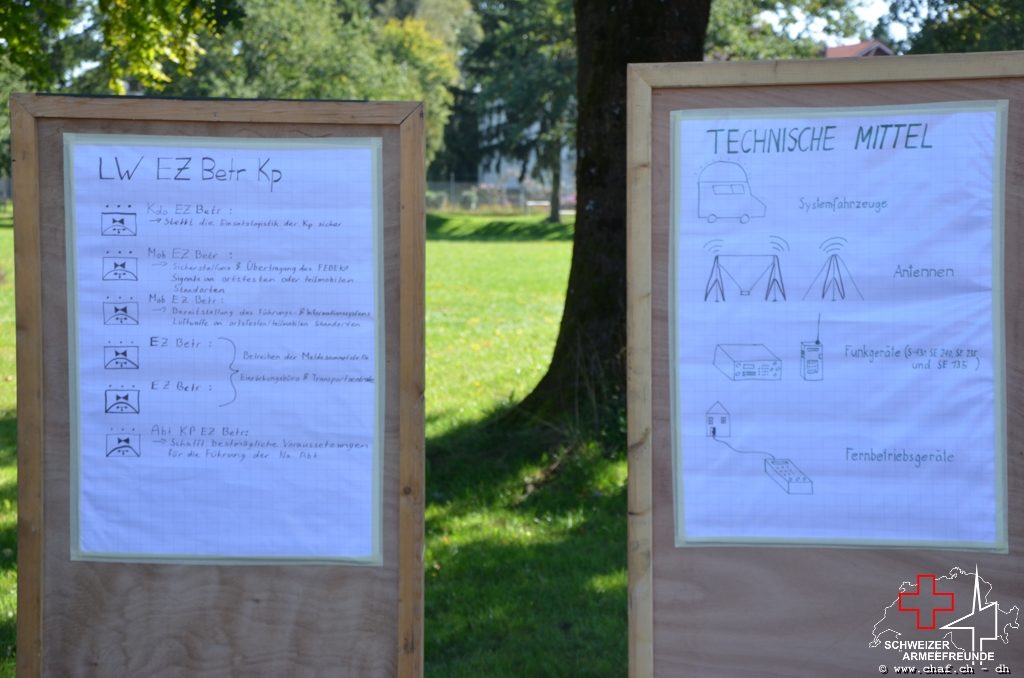 LW EZ Betr Kp
Kdo EZ Betr :
→ Stellt die Einsatzlogistik der Kp sicher
Mob EZ Betr :
→ Sicherstellung & Übertragung des FEBEKO
Signals an ortsfesten oder teilmobilen
Standorten
Mob EZ Betr :
→ Bereitstellung des Führungs- & Informationssystems
Luftwaffe an ortsfesten/teilmobilen Standorten
EZ Betr :
Betreiben der
EZ Betr :
Einrückungsbüro & Transportzentrale
Abt KP EZ Betr:
→ Schafft bestmögliche Voraussetzungen
für die Führung der Na Abt
TECHNISCHE MITTEL
Systemfahrzeuge
Antennen
Funkgeräte (S-430, SE 240, SE 235
und SE 135 )
Fernbetriebsgeräte
SCHWEIZER
ARMEEFREUNDE
© www.chaf.ch - dh